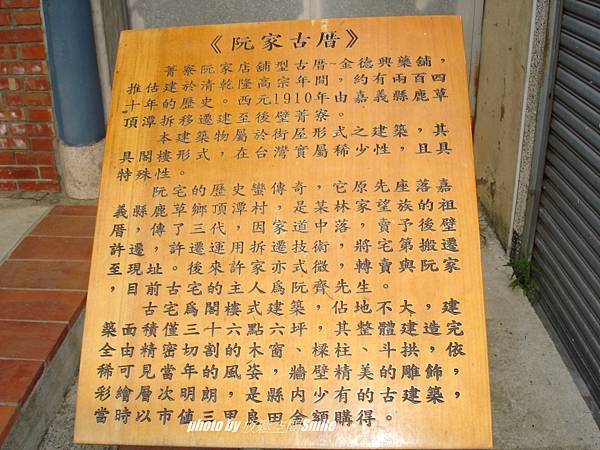 《阮家古厝》
菁寮阮家店舖型古厝~金德興藥舖，
推估建於清乾隆高宗年間，約有兩百四
十年的歷史。西元1910年由嘉義縣鹿草
頂潭拆移遷建至後壁菁寮。
本建築物屬於街屋形式之建築，其
具閣樓形式，在台灣實屬稀少性，且具
特殊性。
阮宅的歷史蠻傳奇，它原先座落嘉
義縣鹿草鄉頂潭村，是某林家望族的祖
厝，傳了三代，因家道中落，賣予後壁
許遷，許遷運用拆遷技術，將宅第搬遷
至現址。後來許家亦式微，轉賣與阮家
，目前古宅的主人為阮齊先生。
古宅為閣樓式建築，佔地不大，建
築面積僅三十六點六坪，其整體建造完
全由精密切割的木窗、樑柱、斗拱，依
稀可見當年的風姿，牆壁精美的雕飾，
彩繪層次明朗，是縣內少有的古建築，
當時以市值三甲良田金額購得。
photo by
Smile